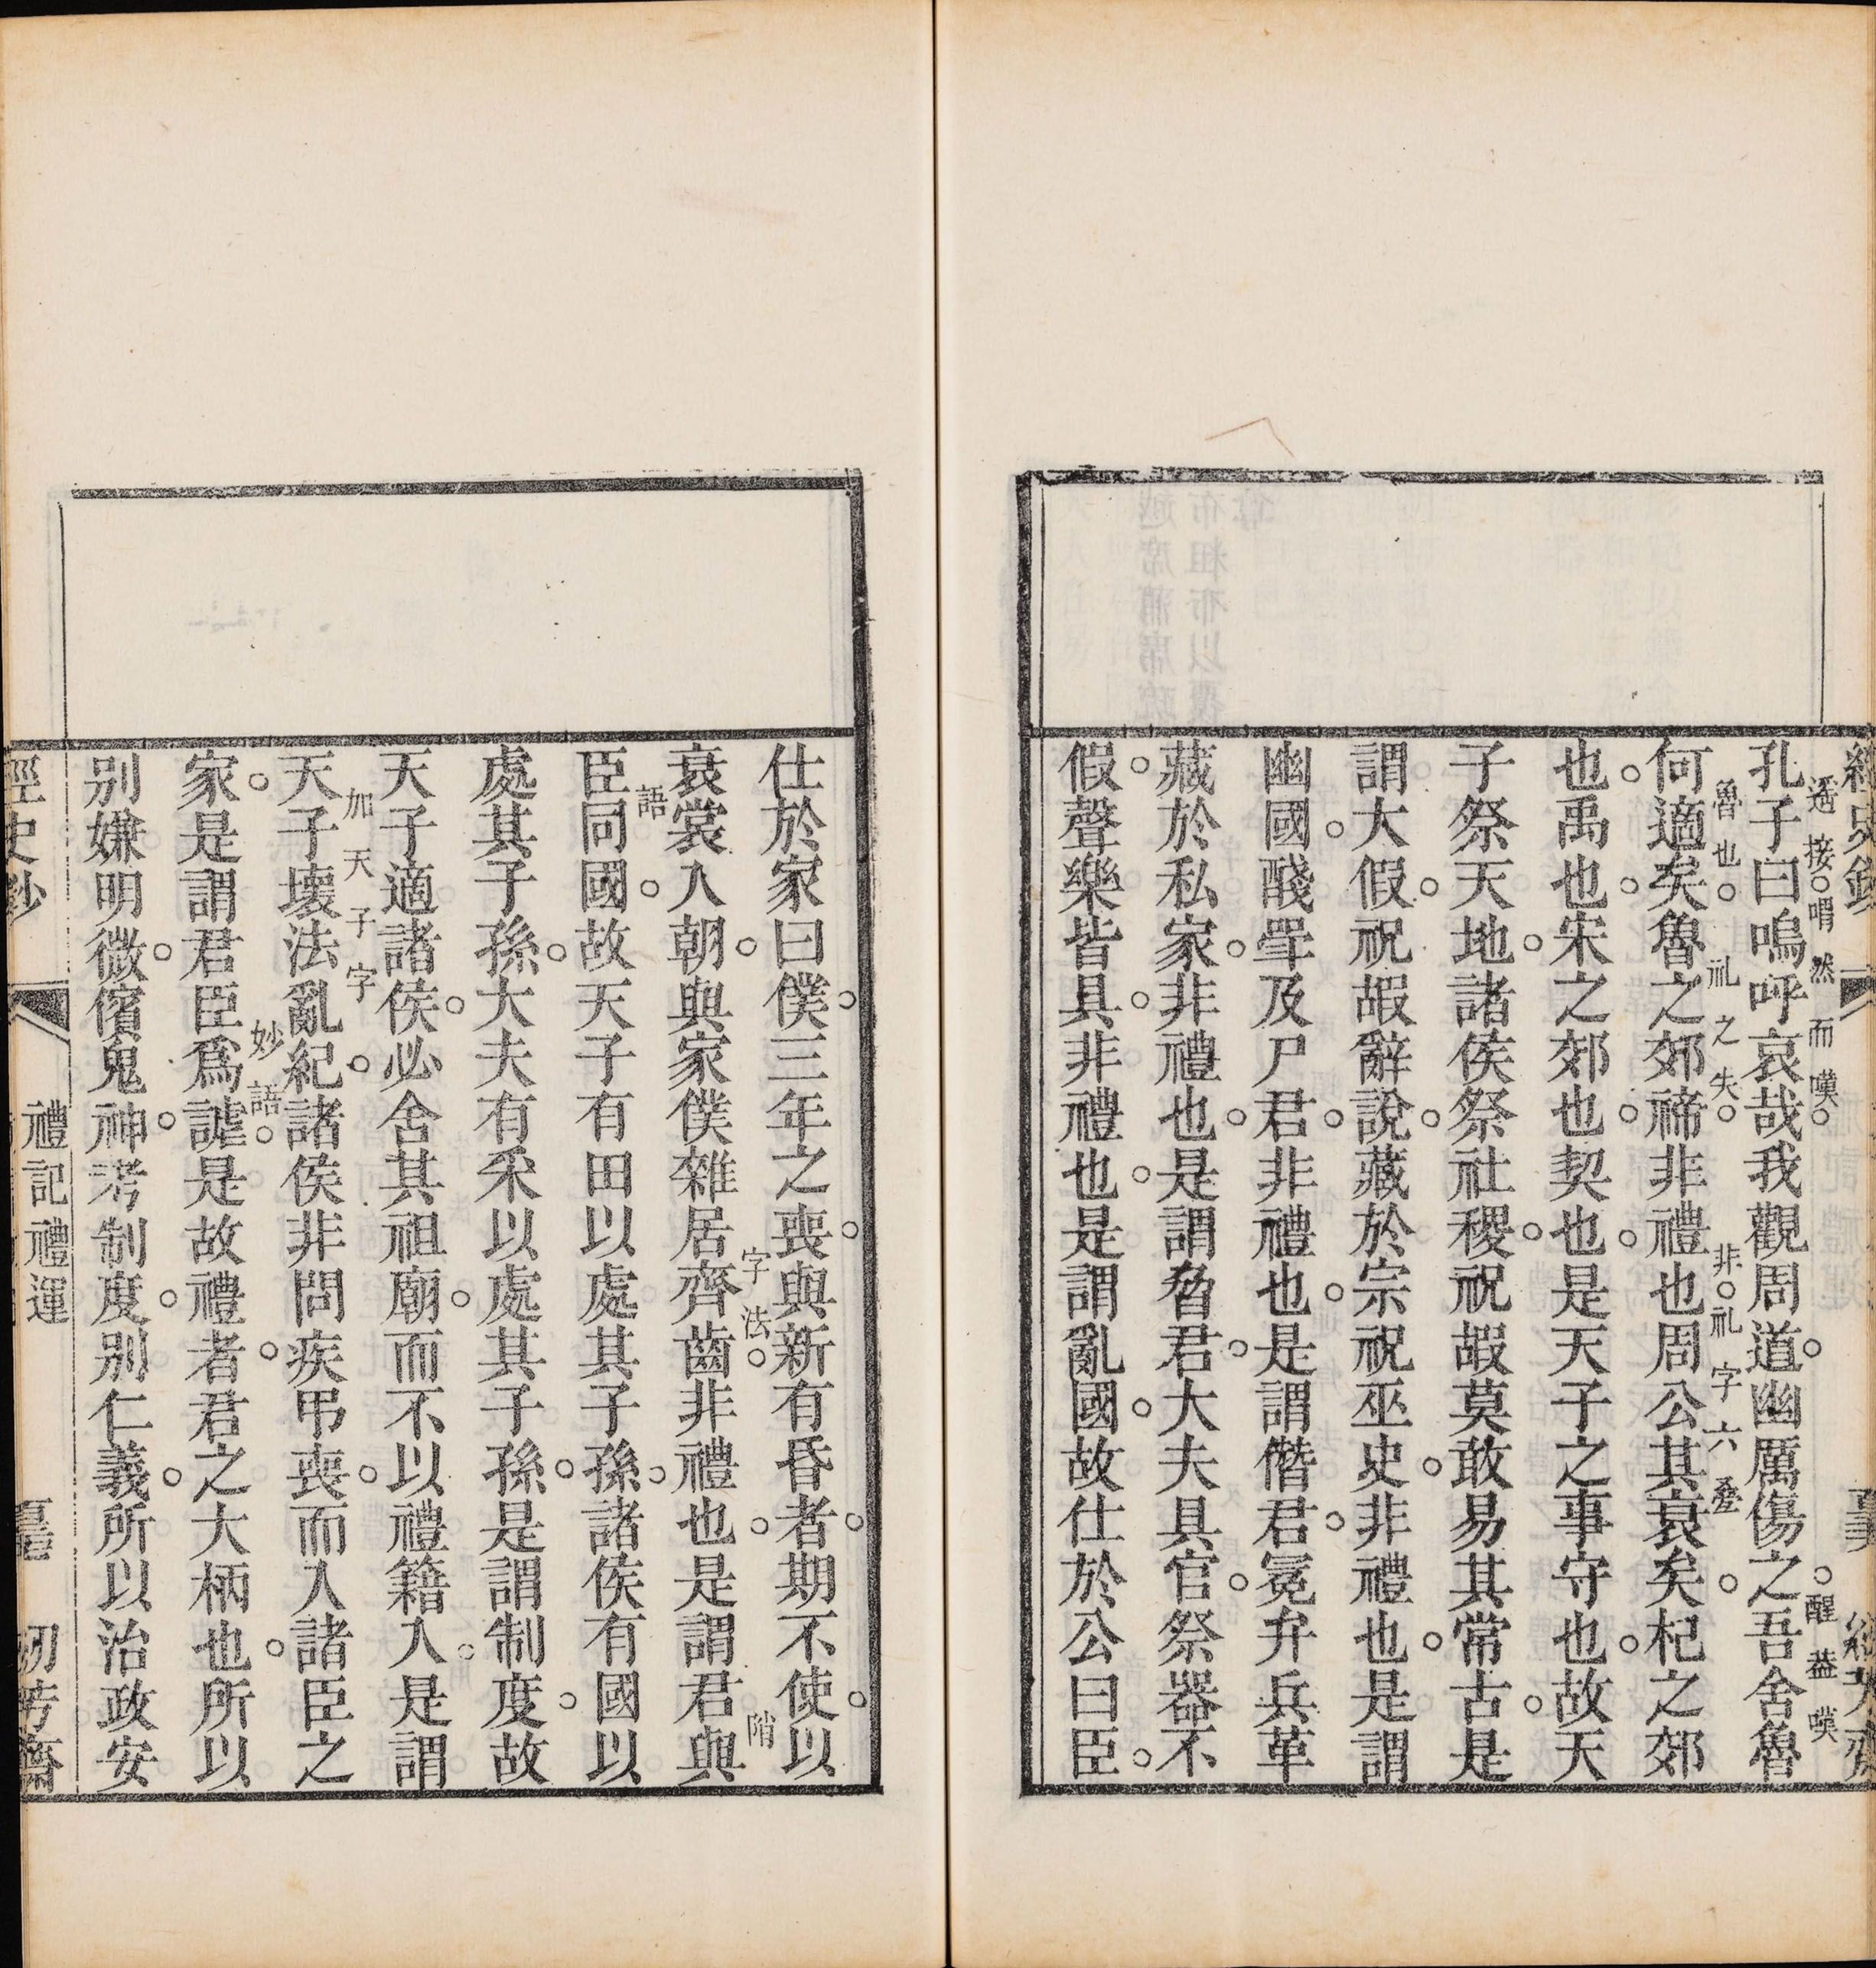 孔子曰嗚呼哀哉我觀周道幽厲傷之吾舍魯
遥接喟然而嘆
醒益嘆
何適矣魯之郊禘非禮也周公其衰矣杞之郊
魯也
礼之失
非礼字六叠
也禹也宋之郊也契也是天子之事守也故天
子祭天地諸侯祭社稷祝嘏莫敢易其常古是
謂大假祝嘏辭說藏於宗祝巫史非禮也是謂
幽國醆斝及尸君非禮也是謂僭君冕弁兵革
藏於私家非禮也是謂脅君大夫具官祭器不
假聲樂皆具非禮也是謂亂國故仕於公曰臣
仕於家曰僕三年之喪與新有昏者期不使以
衰裳入朝與家僕雜居齊齒非禮也是謂君與
字法
臣同國故天子有田以處其子孫諸侯有國以
語
處其子孫大夫有采以處其子孫是謂制度故
天子適諸侯必舍其祖廟而不以禮籍入是謂
天子壞法亂紀諸侯非問疾弔喪而入諸臣之
加天子字
家是謂君臣爲謔是故禮者君之大柄也所以
妙語
别嫌明微儐鬼神考制度别仁義所以治政安
經史鈔
禮記禮運